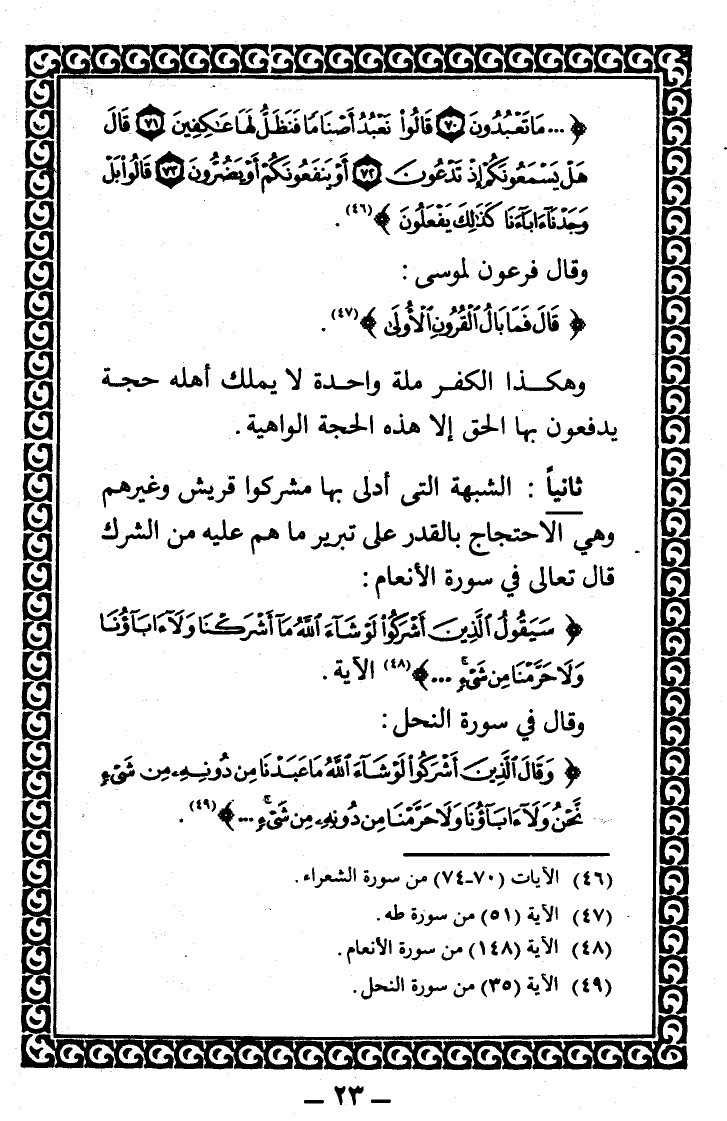 ﴿ ... مَا تَعْبُدُونَ ﴿٧٠﴾ قَالُوا۟ نَعْبُدُ أَصْنَامًا فَنَظَلُّ لَهَا عَـٰكِفِينَ ﴿٧١﴾ قَالَ
هَلْ يَسْمَعُونَكُمْ إِذْ تَدْعُونَ ﴿٧٢﴾ أَوْ يَنفَعُونَكُمْ أَوْ يَضُرُّونَ ﴿٧٣﴾ قَالُوا۟ بَلْ
وَجَدْنَآ ءَابَآءَنَا كَذَٰلِكَ يَفْعَلُونَ ﴾ (٤٦) .
وقال فرعون لموسى :
﴿ قَالَ فَمَا بَالُ ٱلْقُرُونِ ٱلْأُولَىٰ ﴾ (٤٧) .
وهكـذا الكفـر ملة واحـدة لا يملك أهله حجـة
يدفعون بها الحق إلا هذه الحجة الواهية .
ثانياً : الشبهة التى أدلى بها مشركوا قريش وغيرهم
وهي الاحتجاج بالقدر على تبرير ما هم عليه من الشرك
قال تعالى في سورة الأنعام :
﴿ سَيَقُولُ ٱلَّذِينَ أَشْرَكُوا۟ لَوْ شَآءَ ٱللَّهُ مَآ أَشْرَكْنَا وَلَآ ءَابَآؤُنَا
وَلَا حَرَّمْنَا مِن شَىْءٍ ۚ ... ﴾ (٤٨) الآية .
وقال في سورة النحل :
﴿ وَقَالَ ٱلَّذِينَ أَشْرَكُوا۟ لَوْ شَآءَ ٱللَّهُ مَا عَبَدْنَا مِن دُونِهِۦ مِن شَىْءٍ
نَّحْنُ وَلَآ ءَابَآؤُنَا وَلَا حَرَّمْنَا مِن دُونِهِۦ مِن شَىْءٍ ۚ ... ﴾ (٤٩) .
(٤٦) الآيات (٧٠-٧٤) من سورة الشعراء .
(٤٧) الآية (٥١) من سورة طه .
(٤٨) الآية (١٤٨) من سورة الأنعام .
(٤٩) الآية (٣٥) من سورة النحل .
– ٢٣ –